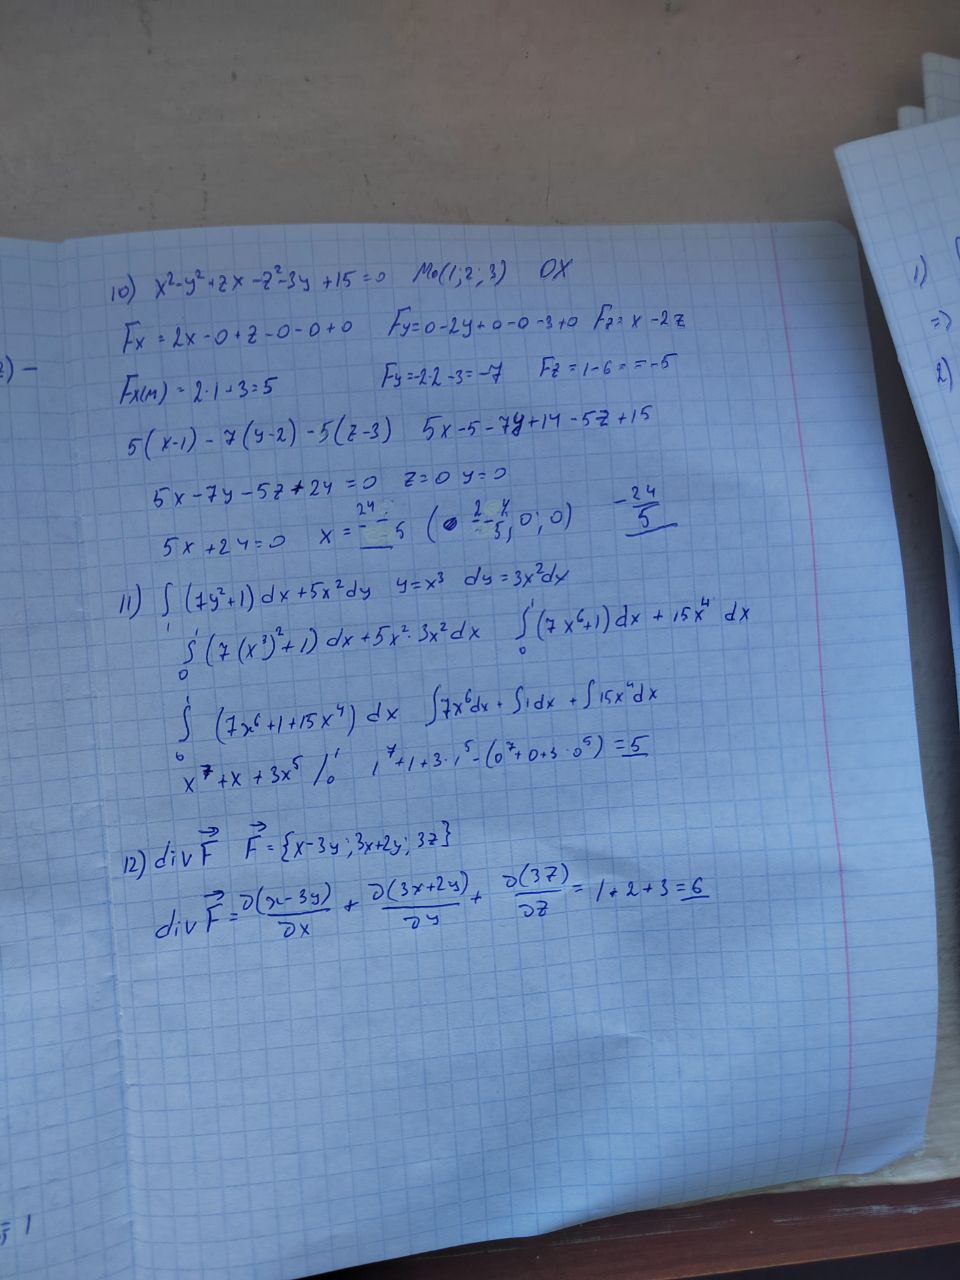 10) x²-y²+zx-z²-3y+15=0 M₀(1;2;3) OX
Fx = 2x-0+z-0-0+0 Fy=0-2y+0-0-3+0 Fz= x-2z
Fx(M) = 2·1+3=5 Fy=-2·2-3=-7 Fz = 1-6 = = -5
5(x-1)-7(y-2)-5(z-3) 5x-5-7y+14-5z+15
5x-7y-5z+24=0 z=0 y=0
5x+24=0 x = 24/5 ( 24/5, 0; 0) -24/5
11) ∫ (7y²+1) dx+5x²dy y=x³ dy=3x²dx
∫₀¹ (7(x³)²+1) dx+5x²·3x²dx ∫₀¹ (7x⁶+1) dx + 15x⁴ dx
∫₀¹ (7x⁶+1+15x⁴) dx ∫7x⁶dx+∫1dx+∫15x⁴dx
x⁷+x+3x⁵ /₀¹ 1⁷+1+3·1⁵-(0⁷+0+3·0⁵)=5
12) div F⃗ F⃗={x-3y;3x+2y;3z}
div F⃗=∂(x-3y)/∂x + ∂(3x+2y)/∂y + ∂(3z)/∂z = 1+2+3=6
1)
=>
2)
2) -
= 1